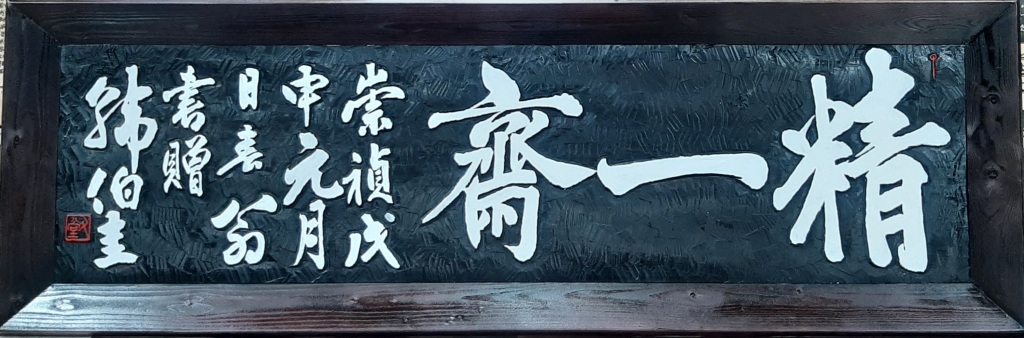 精一齋
崇禎戊
申元月
日喜翁
書贈
韓伯圭